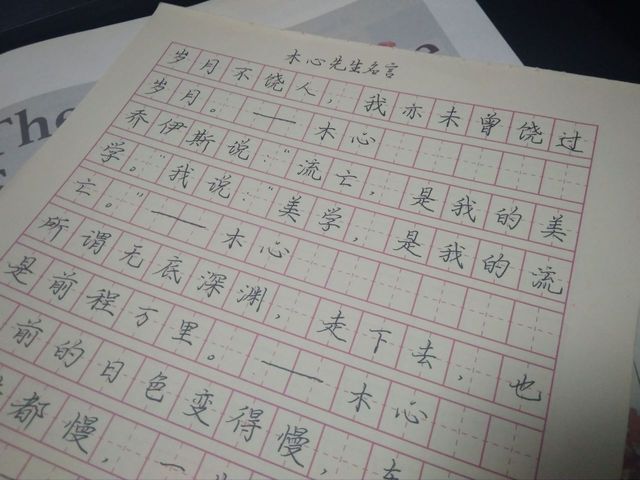 The
木心先生名言
岁月不饶人，我亦未曾饶过
岁月。——木心
乔伊斯说："流亡，是我的美
学。"我说："美学，是我的流
亡。"——木心
所谓无底深渊，走下去，也
是前程万里。——木心
前的日色变得慢，车
都慢，一